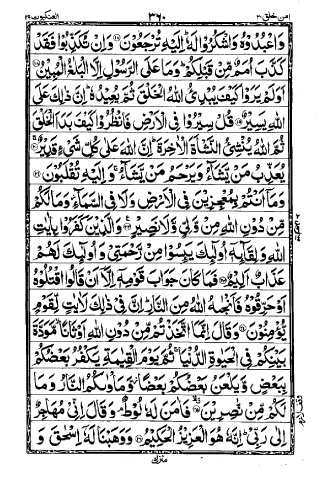 العنكبوت ٢٩ ٣٦٠ امن خلق ٢٠
وَاعْبُدُوْهُ وَاشْكُرُوْا لَهٗ اِلَيْهِ تُرْجَعُوْنَ ۝ وَاِنْ تُكَذِّبُوْا فَقَدْ
كَذَّبَ اُمَمٌ مِّنْ قَبْلِكُمْ وَمَا عَلَى الرَّسُوْلِ اِلَّا الْبَلٰغُ الْمُبِيْنُ ۝
اَوَلَمْ يَرَوْا كَيْفَ يُبْدِئُ اللّٰهُ الْخَلْقَ ثُمَّ يُعِيْدُهٗ اِنَّ ذٰلِكَ عَلَى
اللّٰهِ يَسِيْرٌ ۝ قُلْ سِيْرُوْا فِى الْاَرْضِ فَانْظُرُوْا كَيْفَ بَدَاَ الْخَلْقَ
ثُمَّ اللّٰهُ يُنْشِئُ النَّشْاَةَ الْاٰخِرَةَ اِنَّ اللّٰهَ عَلٰى كُلِّ شَىْءٍ قَدِيْرٌ ۝
يُعَذِّبُ مَنْ يَّشَآءُ وَيَرْحَمُ مَنْ يَّشَآءُ وَاِلَيْهِ تُقْلَبُوْنَ ۝
وَمَآ اَنْتُمْ بِمُعْجِزِيْنَ فِى الْاَرْضِ وَلَا فِى السَّمَآءِ وَمَا لَكُمْ
مِّنْ دُوْنِ اللّٰهِ مِنْ وَّلِىٍّ وَّلَا نَصِيْرٍ ۝ وَالَّذِيْنَ كَفَرُوْا بِاٰيٰتِ
اللّٰهِ وَلِقَآئِهٖٓ اُولٰٓئِكَ يَئِسُوْا مِنْ رَّحْمَتِىْ وَاُولٰٓئِكَ لَهُمْ
عَذَابٌ اَلِيْمٌ ۝ فَمَا كَانَ جَوَابَ قَوْمِهٖٓ اِلَّآ اَنْ قَالُوا اقْتُلُوْهُ
اَوْ حَرِّقُوْهُ فَاَنْجٰىهُ اللّٰهُ مِنَ النَّارِ اِنَّ فِىْ ذٰلِكَ لَاٰيٰتٍ لِّقَوْمٍ
يُّؤْمِنُوْنَ ۝ وَقَالَ اِنَّمَا اتَّخَذْتُمْ مِّنْ دُوْنِ اللّٰهِ اَوْثَانًا مَّوَدَّةَ
بَيْنِكُمْ فِى الْحَيٰوةِ الدُّنْيَا ثُمَّ يَوْمَ الْقِيٰمَةِ يَكْفُرُ بَعْضُكُمْ
بِبَعْضٍ وَّيَلْعَنُ بَعْضُكُمْ بَعْضًا وَّمَاْوٰىكُمُ النَّارُ وَمَا
لَكُمْ مِّنْ نّٰصِرِيْنَ ۝ فَاٰمَنَ لَهٗ لُوْطٌ وَقَالَ اِنِّىْ مُهَاجِرٌ
اِلٰى رَبِّىْ اِنَّهٗ هُوَ الْعَزِيْزُ الْحَكِيْمُ ۝ وَوَهَبْنَا لَهٗٓ اِسْحٰقَ وَ
منزل